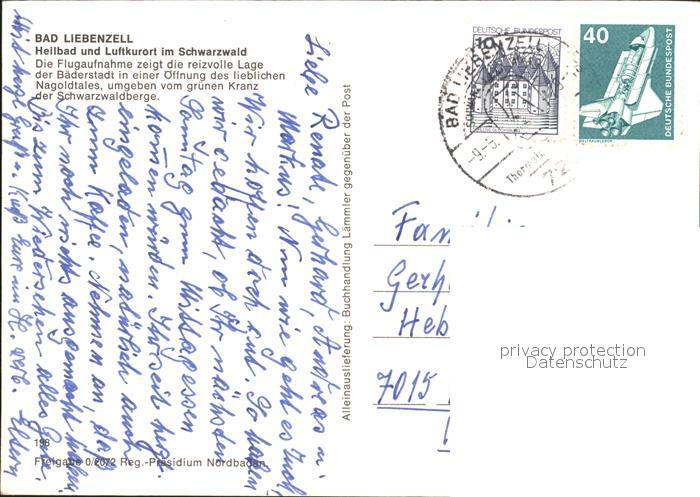 BAD LIEBENZELL
Heilbad und Luftkurort im Schwarzwald
Die Flugaufnahme zeigt die reizvolle Lage
der Bäderstadt in einer Öffnung des lieblichen
Nagoldtales, umgeben vom grünen Kranz
der Schwarzwaldberge.
Liebe Renate, Gerhard, Andreas u.
Markus! Nun wie geht es Euch,
Wir hoffen doch gut. So haben
wir gedacht, ob Ihr nächsten
Sonntag zum Mittagessen
kommen würden. Ihr seit herzl.
eingeladen, natürlich auch
zum Kaffee. Nehmen an, daß
Ihr noch nichts ausgemacht habt.
Bis zum Wiedersehen alles Gute.
Gruß u. Kuß Eure
198
Freigabe 0/2072 Reg.-Präsidium Nordbaden
Alleinauslieferung: Buchhandlung Lämmler gegenüber der Post
DEUTSCHE BUNDESPOST
BAD LIEBENZELL
-9.-5.
Therm
72
40
DEUTSCHE BUNDESPOST
WELTRAUMLABOR
Fam
Gerh
Heb
7015
privacy protection
Datenschutz